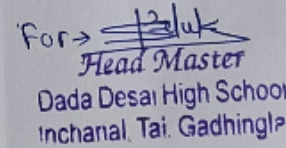 For→
Head Master
Dada Desai High School
Inchanal. Tal. Gadhingla